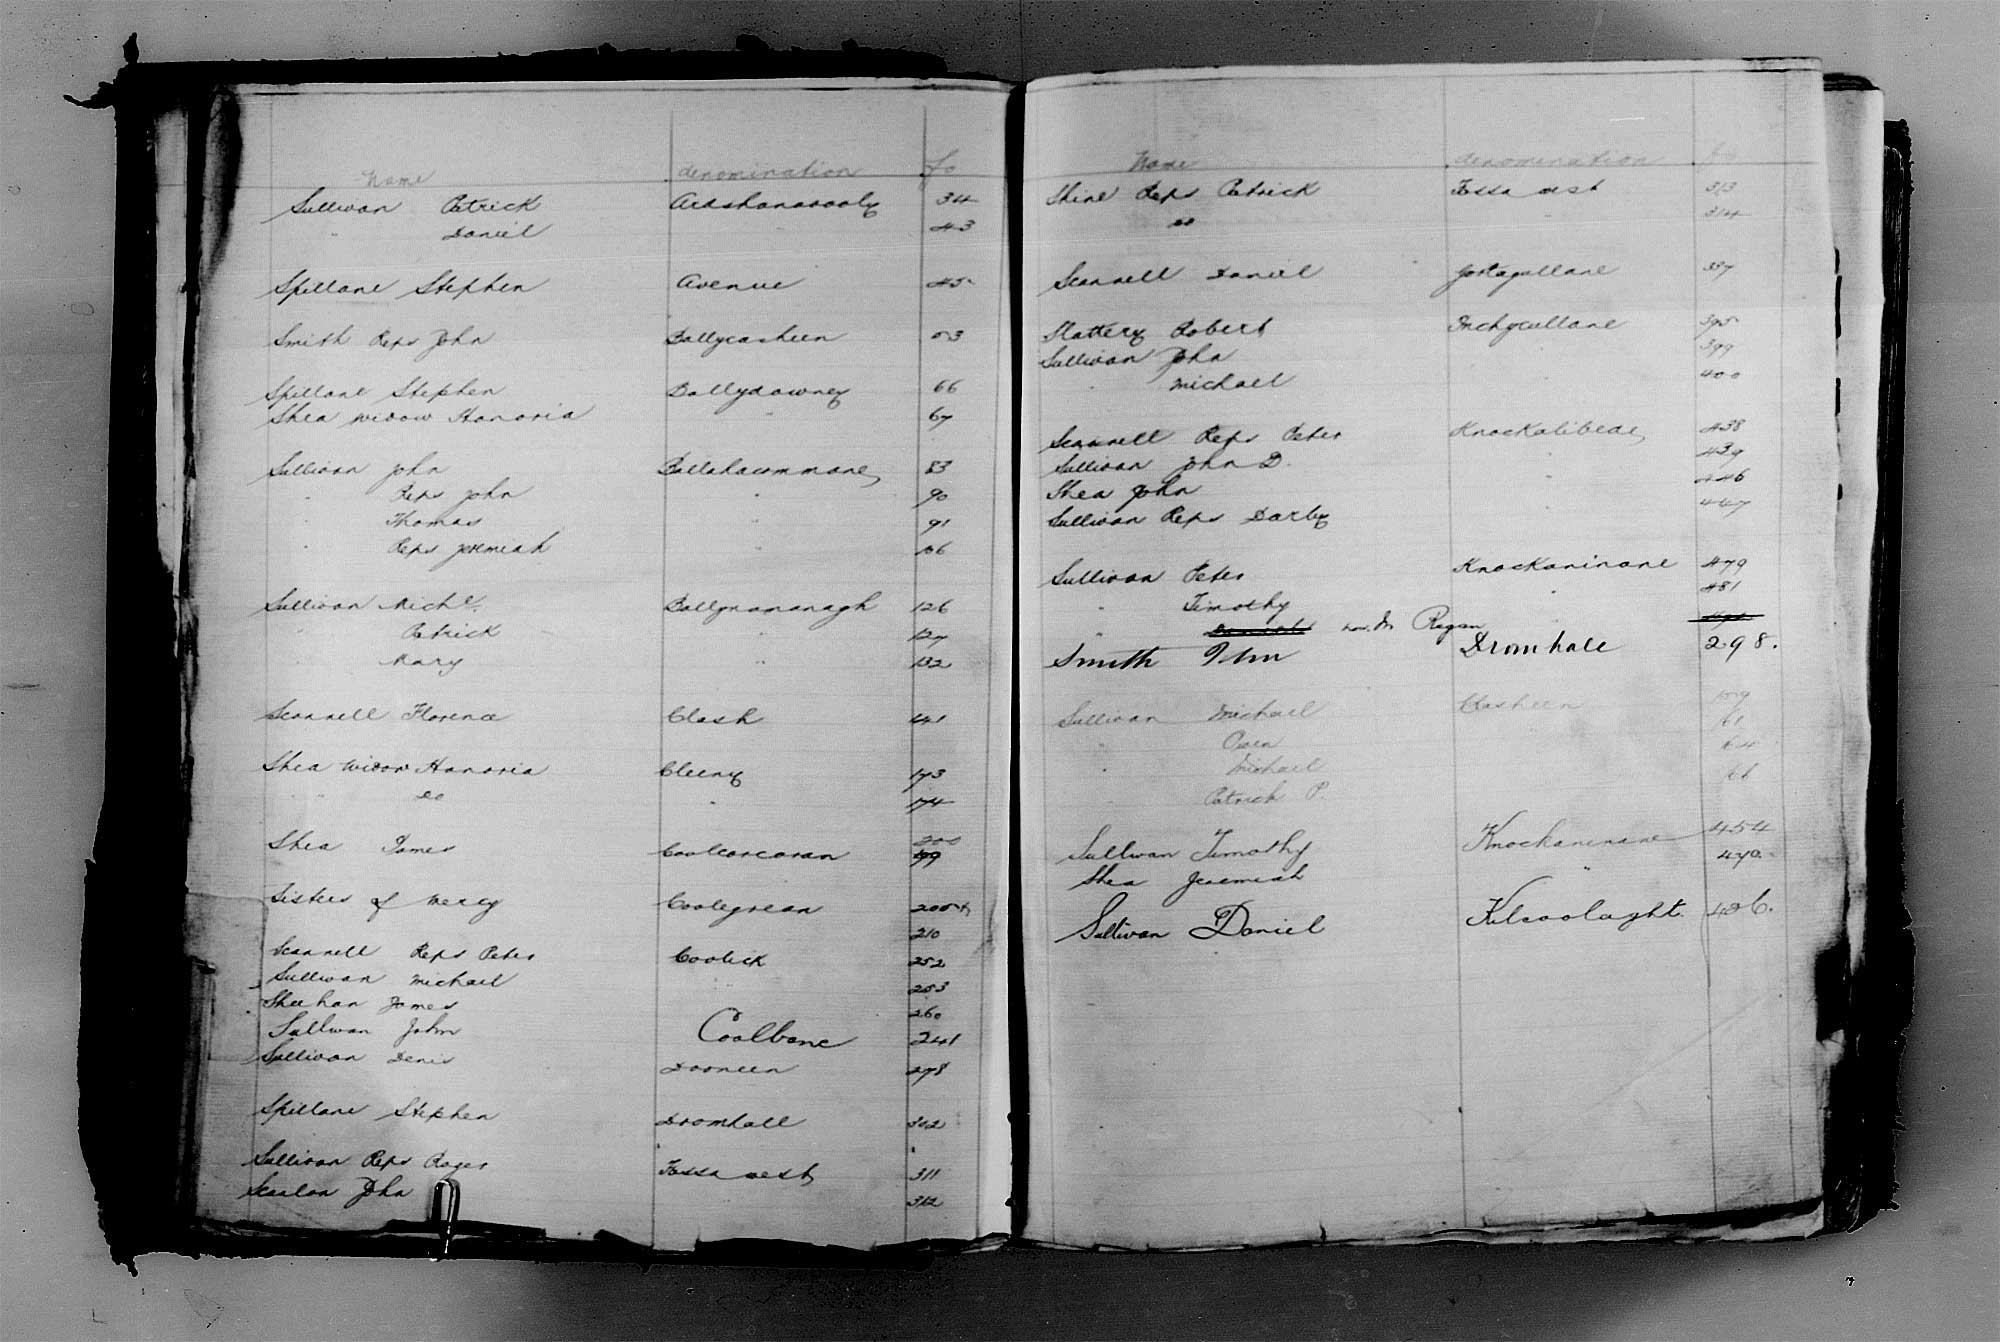 Name denomination fo
Sullivan Patrick Ardshanavooly 34
" Daniel 43
Spillane Stephen Avenue 45
Smith Reps John Ballycasheen 53
Spillane Stephen Ballydowney 66
Shea Widow Hanoria " 67
Sullivan John Ballahacommane 83
" Reps John " 90
" Thomas " 91
" Reps Jeremiah " 106
Sullivan Michl Ballynamanagh 126
" Patrick " 127
" Mary " 132
Scannell Florence Clash 141
Shea Widow Hanoria Cleeny 173
" " do " 174
Shea James Coolcorcoran 200 199
Sisters of Mercy Coolegrean
210
Scannell Reps Peter Coolick 252
Sullivan Michael " 253
Sheehan James 260
Sullivan John Coolbane 241
Sullivan Denis Dooneen 278
Spillane Stephen Dromhall 302
Sullivan Reps Roger Fossa west 311
Scanlon John 312
Name denomination fo
Shine Reps Patrick Fossa west 313
do 314
Scannell Daniel Gortagullane 337
Slattery Robert Inchycullane 395
Sullivan John " 399
" Michael " 400
Scannell Reps Peter Knockalibeade 438
Sullivan John D. " 439
Shea John " 446
Sullivan Reps Darby 447
Sullivan Peter Knockaninane 479
" Timothy " 481
" Daniel now M Regan
Smith John Dromhale 298.
Sullivan Michael Casheen 159
" Owen 61
" Michael 64
Patrick P. 66
Sullivan Timothy Knockaninane 454
Shea Jeremiah " 470.
Sullivan Daniel Kilcoolaght. 426.